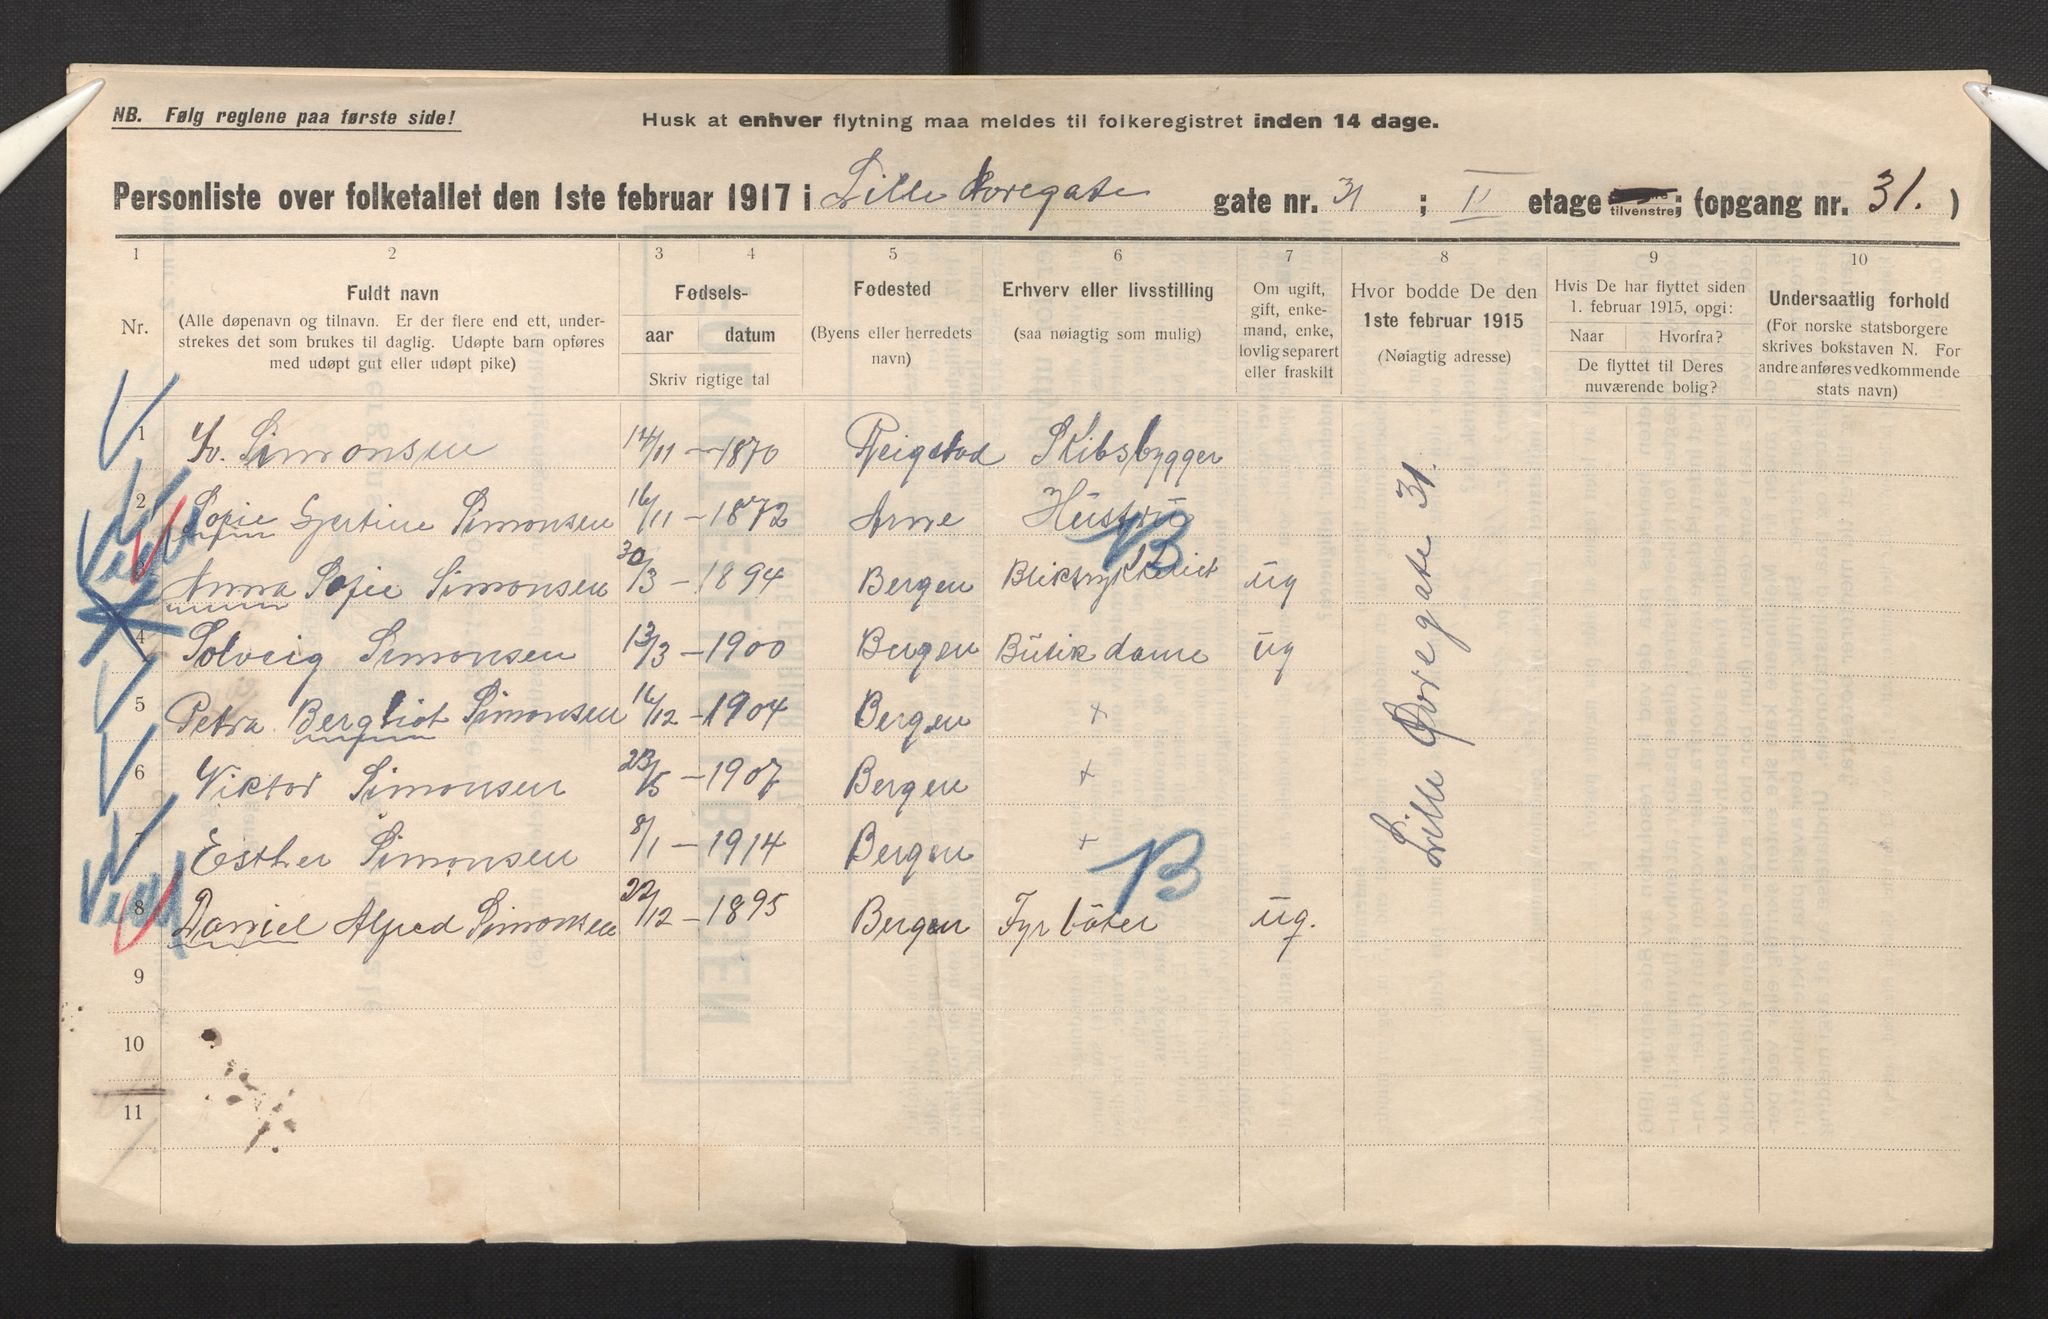 NB. Følg reglene paa første side!
Husk at enhver flytning maa meldes til folkeregistret inden 14 dage.
Personliste over folketallet den 1ste februar 1917 i Lille Øvregate gate nr. 31 ; II etage tilvenstre; (opgang nr. 31. )
1 2 3 4 5 6 7 8 9 10
Nr.
Fuldt navn
(Alle døpenavn og tilnavn. Er der flere end ett, under-
strekes det som brukes til daglig. Udøpte barn opføres
med udøpt gut eller udøpt pike)
Fødsels-
aar datum
Skriv rigtige tal
Fødested
(Byens eller herredets
navn)
Erhverv eller livsstilling
(saa nøiagtig som mulig)
Om ugift,
gift, enke-
mand, enke,
lovlig separert
eller fraskilt
Hvor bodde De den
1ste februar 1915
(Nøiagtig adresse)
Hvis De har flyttet siden
1. februar 1915, opgi:
Naar Hvorfra?
De flyttet til Deres
nuværende bolig?
Undersaatlig forhold
(For norske statsborgere
skrives bokstaven N. For
andre anføres vedkommende
stats navn)
1 Simonsen 14/11 - 1870 Reigstad Skibsbygger
2 Sofie Gjertine Simonsen 16/11 - 1872 Arne Hustru
3 Anna Sofie Simonsen 30/3 - 1894 Bergen Bliktrykkeriet ug
4 Solveig Simonsen 13/3 - 1900 Bergen Butik dame ug
5 Petra Bergliot Simonsen 16/12 - 1904 Bergen +
6 Viktor Simonsen 23/5 - 1907 Bergen +
7 Esther Simonsen 8/1 - 1914 Bergen +
8 Daniel Alfred Simonsen 22/12 - 1895 Bergen Fyrbøter ug.
Lille Øvregate 31.
B
B
9
10
11